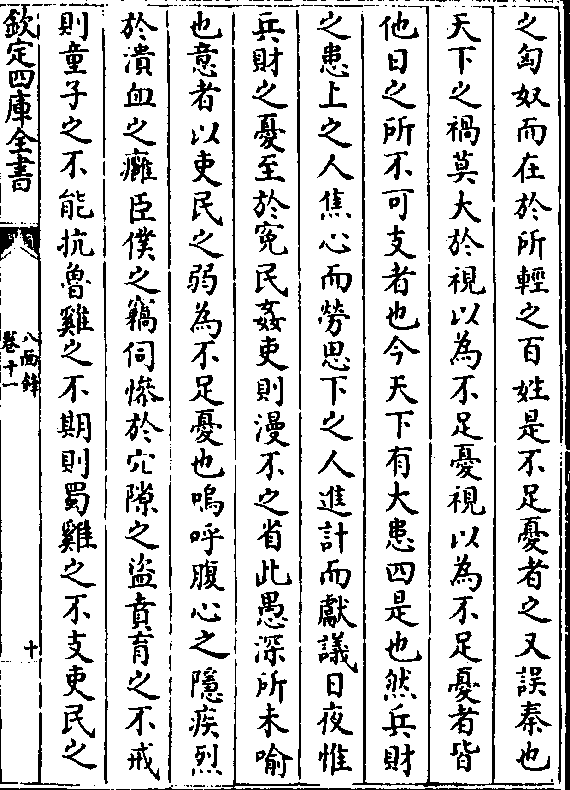 之匈奴而在於所輕之百姓是不足憂者之又誤秦也
天下之禍莫大於視以為不足憂視以為不足憂者皆
他日之所不可支者也今天下有大患四是也然兵財
之患上之人焦心而勞思下之人進計而獻議日夜惟
兵財之憂至於寃民姦吏則漫不之省此愚深所未喻
也意者以吏民之弱為不足憂也嗚呼腹心之隱疾烈
於潰血之癰臣僕之竊伺慘於穴隙之盜賁育之不戒
則童子之不能抗魯雞之不期則蜀雞之不支吏民之
欽定四庫全書
八面鋒
卷十一
十